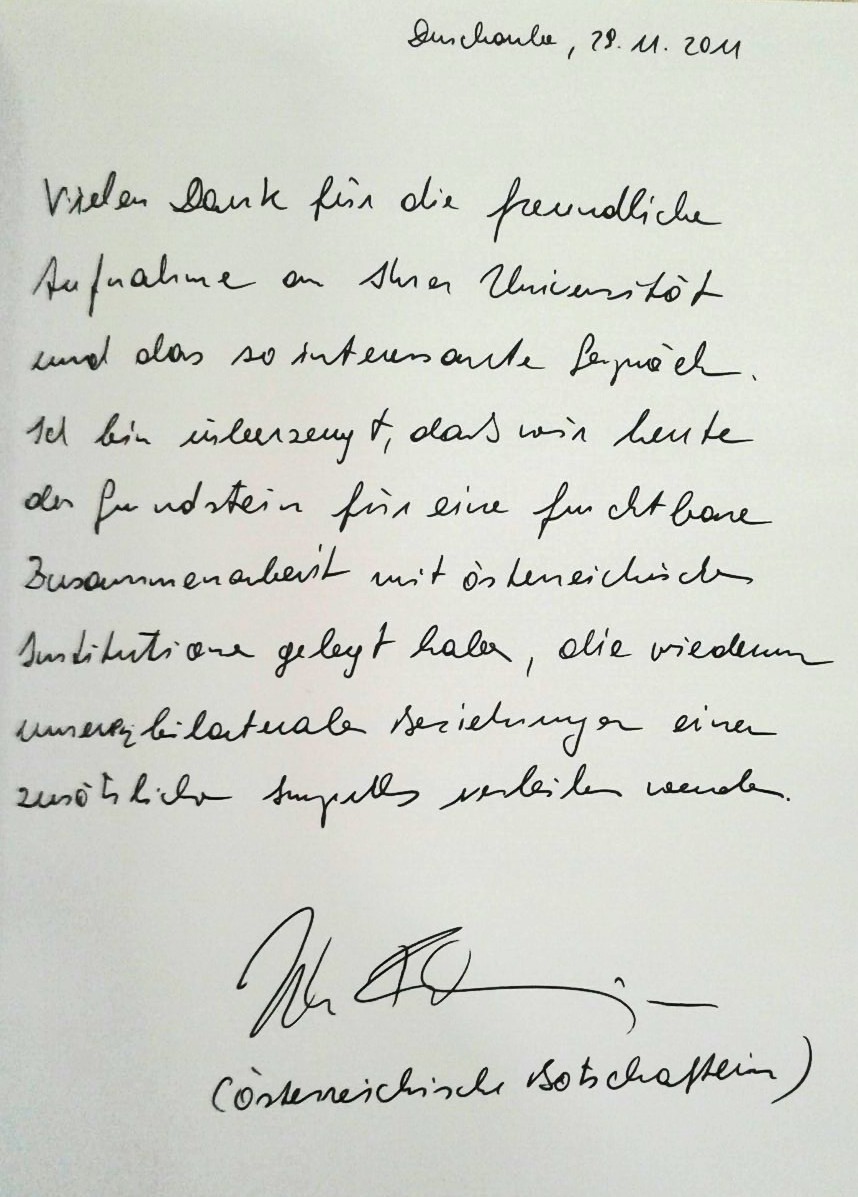 Duschanbe, 29.11.2011
Vielen Dank für die freundliche
Aufnahme an Ihrer Universität
und das so interessante Gespräch.
Ich bin überzeugt, daß wir heute
den Grundstein für eine fruchtbare
Zusammenarbeit mit österreichischen
Institutionen gelegt haben, die wiederum
unseren bilateralen Beziehungen einen
zusätzlichen Impuls verleihen werden.
(Österreichische Botschafterin)